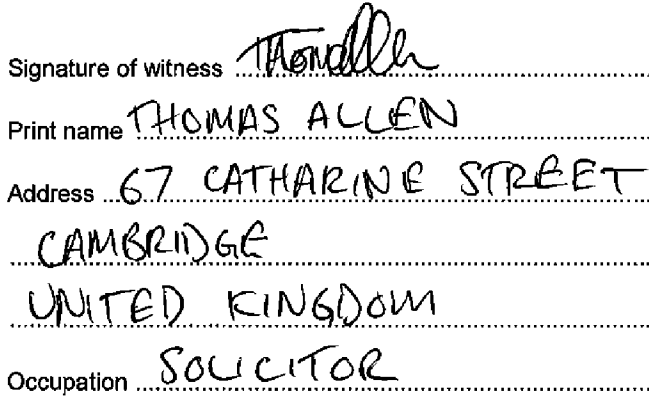 Signature of witness
Print name THOMAS ALLEN
Address 67 CATHARINE STREET
CAMBRIDGE
UNITED KINGDOM
Occupation SOLICITOR